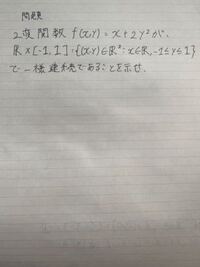 問題
2変関数 f(x,y) = x + 2y² が、
ℝ×[-1,1]:{(x,y)∈ℝ²: x∈ℝ, -1≤y≤1}
で一様連続であることを示せ.